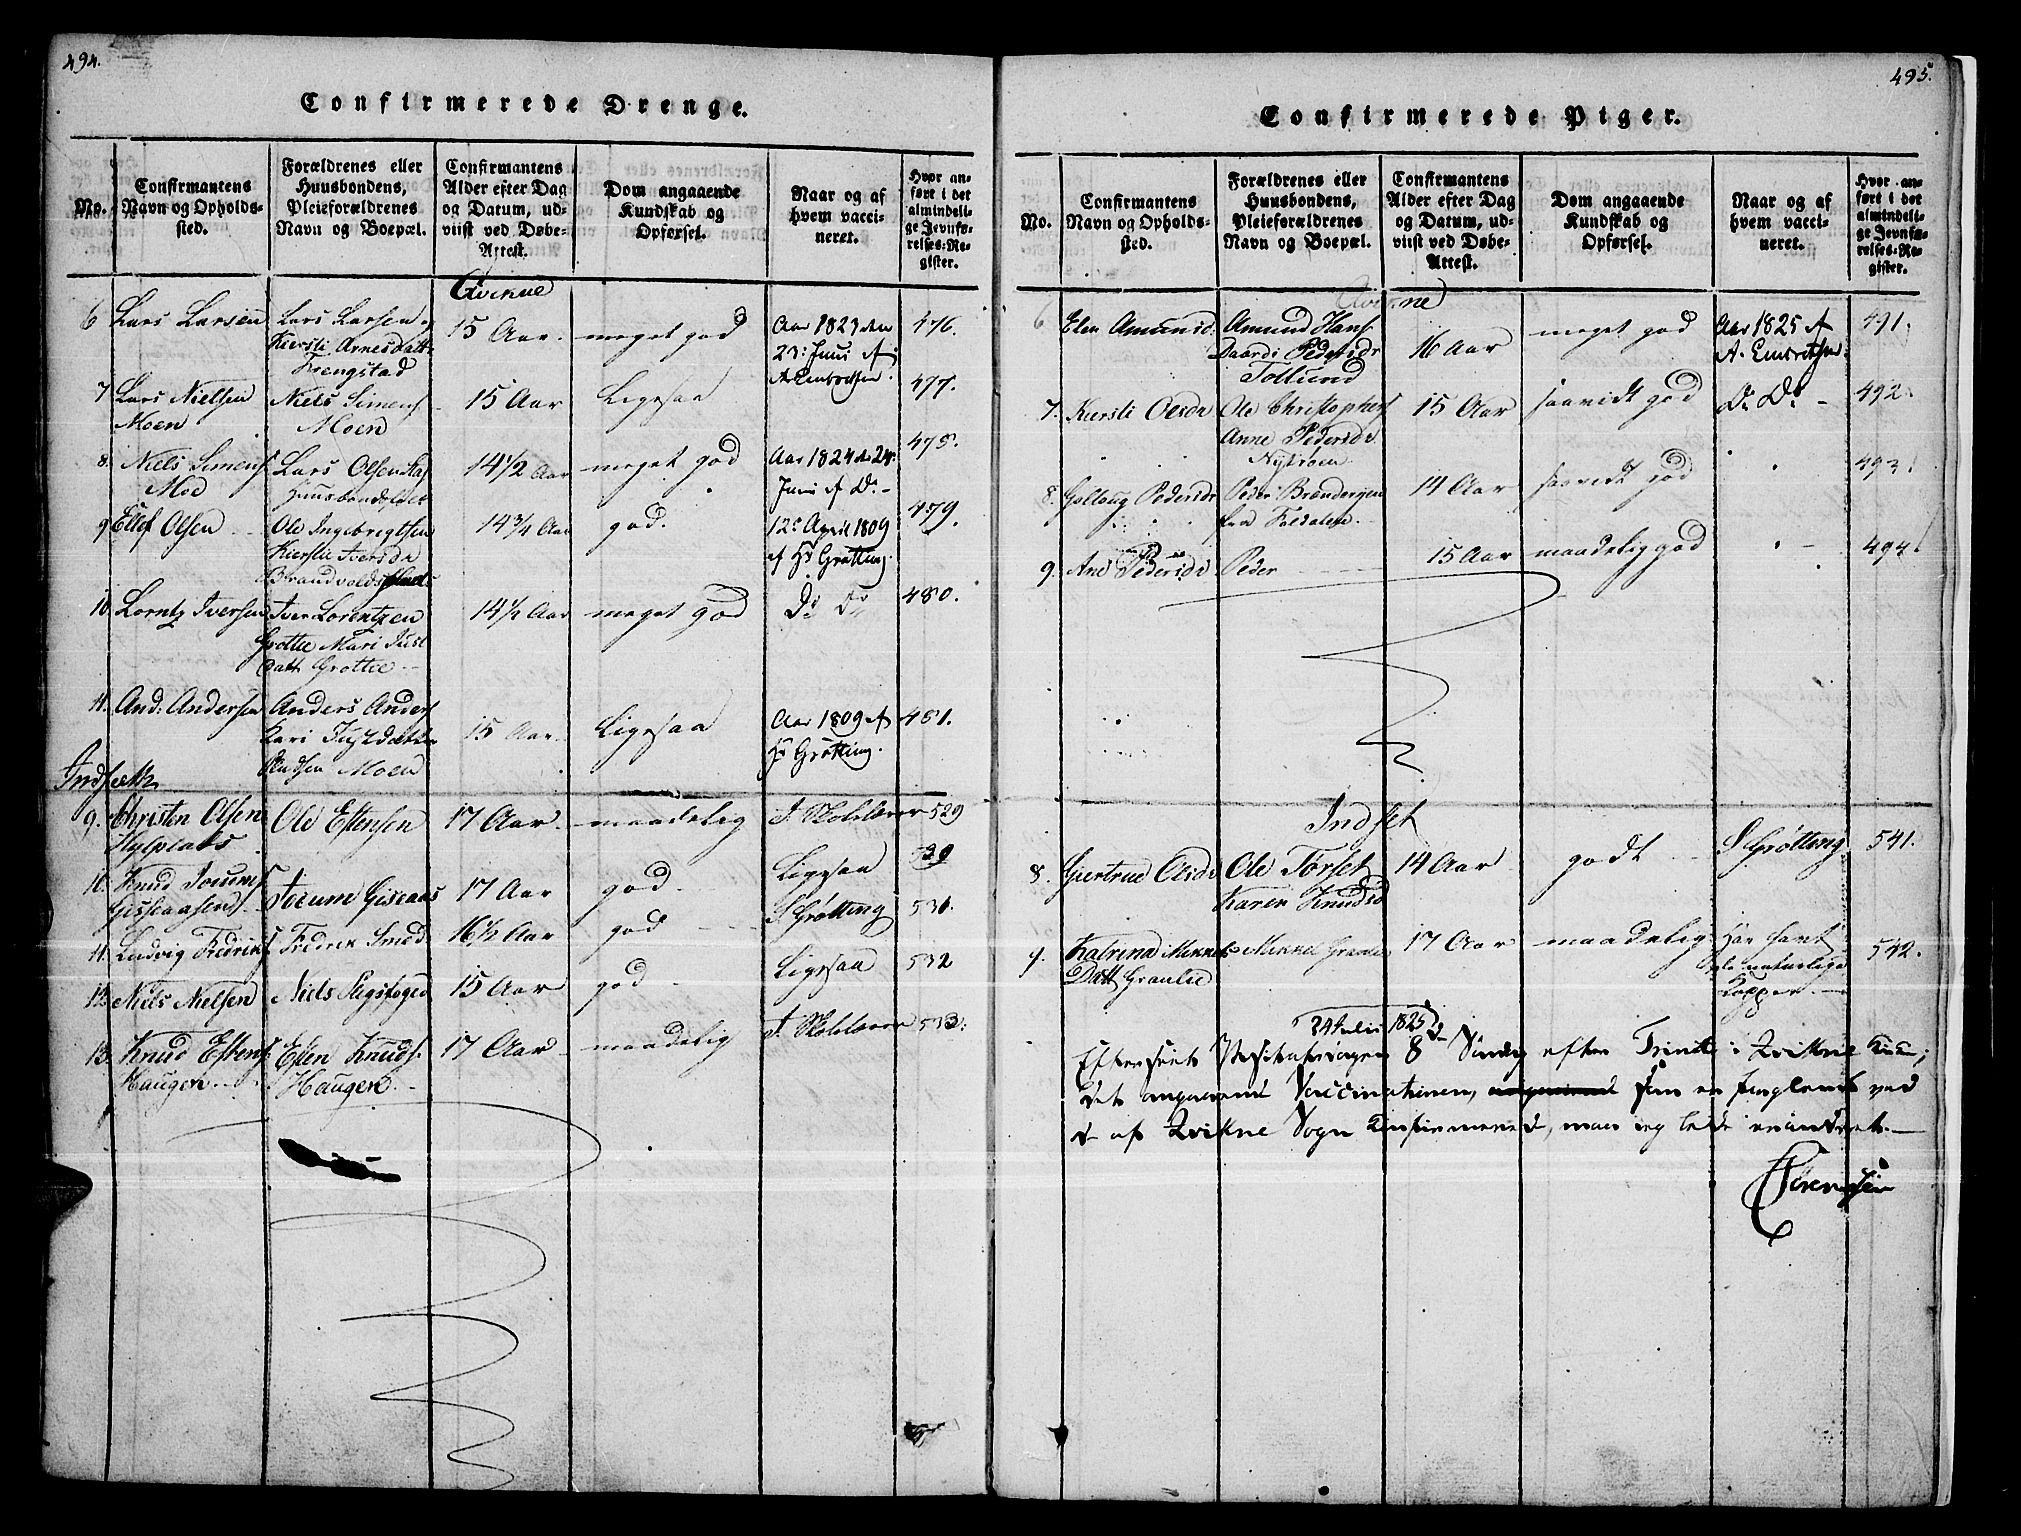 494.
Confirmerede Drenge.
No.
Confirmantens
Navn og Opholds-
sted.
Forældrenes eller
Huusbondens,
Pleieforældrenes
Navn og Boepæl.
Confirmantens
Alder efter Dag
og Datum, ud-
viist ved Døbe-
Attest.
Dom angaaende
Kundskab og
Opførsel.
Naar og af
hvem vacci-
neret.
Hvor an-
ført i det
almindeli-
ge Jevnfø-
relses-Re-
gister.
Qvikne
6 Lars Larsen
Lars Larsen og
Kiersti Arnesdatt.
Frengstad
15 Aar
meget god
Aar 1823 den
23: Juni af
A. Embretsen.
476.
7 Lars Nielsen
Moen
Niels Simens
Moen
15 Aar
Ligesaa
477.
8. Niels Simens
Moe
Lars Olsen
Huusbondsfolket
14 1/2 Aar
meget god
Aar 1824 d. 24
Juni af Do -
478.
9 Ellef Olsen
Ole Ingebrigtsen
Kierstie Iversdr
Brandvolds
14 3/4 Aar
god.
12: April 1809
af Hr Grøtting.
479.
10. Lorntz Iversen
Iver Lorentzen
Grottie Mari Just
Datt. Grottie
14 1/2 Aar
meget god
Do Do
480.
11. And: Andersen
Anders Anders
Kari Justdatter
Moen
15 Aar.
Ligesaa
Aar 1809 af
Hr Grøtting.
481.
Indseth
9. Christen Olsen
Ole Estensen
17 Aar.
maadelig
J. Skolelærer
529
10. Knud Joeums
Joeum Giseaas
17 Aar
god
Ligesaa
11. Ludvig Fredriks
Fredrik Smed
16 1/2 Aar
god
S Grøtting
531.
12. Niels Nielsen
Niels
15 Aar
god
Ligesaa
532
13. Knud Estens
Haugen
Esten Knuds.
Haugen
17 Aar
maadelig
J. Skolelærer
533.
495.
Confirmerede Piger.
No.
Confirmantens
Navn og Opholds-
sted.
Forældrenes eller
Huusbondens,
Pleieforældrenes
Navn og Boepæl.
Confirmantens
Alder efter Dag
og Datum, ud-
viist ved Døbe-
Attest.
Dom angaaende
Kundskab og
Opførsel.
Naar og af
hvem vacci-
neret.
Hvor an-
ført i det
almindeli-
ge Jevnfø-
relses-Re-
gister.
Qvikne
6 Elen Amunsd.
Amund Hans
Pedersdr
Tollund
16 Aar
meget god
Aar 1825 af
A. Embretsen
491.
7. Kiersti Olsdr
Ole Christophers
Anne Pedersdr.
Nytrøen
15 Aar
saavidt god
Do Do -
492.
8. Pedersdr
Peder
fra Foldalen
14 Aar
saavidt god
493.
9. Ane Pedersdr
Peder
15 Aar
maadelig god
494.
Indset
8. Giertrue Olsdr
Ole Tørset
Karen Knudsd
14 Aar
godt
S Grøtting
541.
9. Katrina Mekkels
Datt Graulie
Mekkel
17 Aar
maadelig
Har havt
de naturlige
Kopper.
542.
24 Julii 1825
Efterseet 8 Søndag efter Trinit: i Qvikne
Det angaaende Vaccinationen, som er ved
af Qvikne Sogn Confirmered, maa
Sørensen